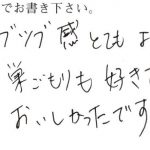 でお書き下さい。
ブツブ感とてもよ
巣ごもりも好きで
おいしかったです